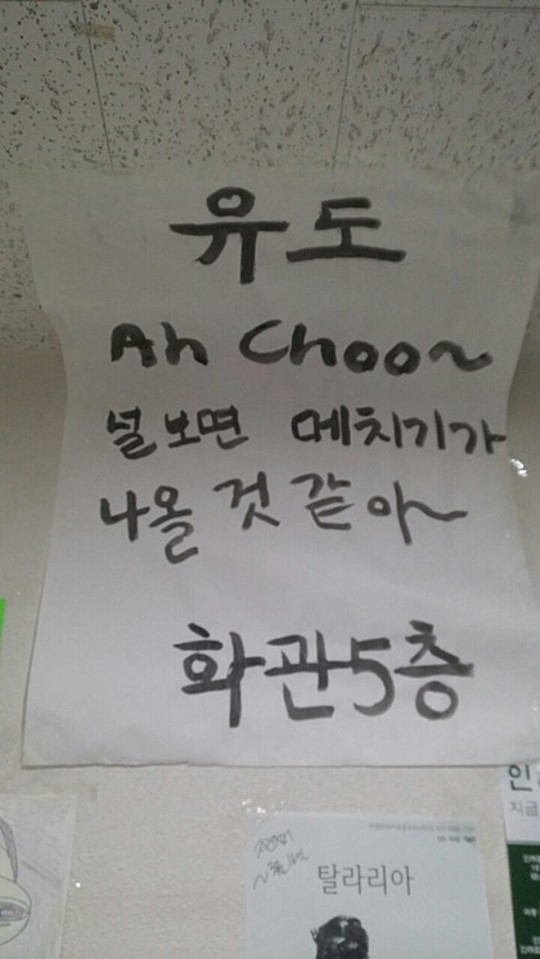 유도
Ah Choo~
널보면 메치기가
나올 것 같아~
화관5층
탈라리아
지금